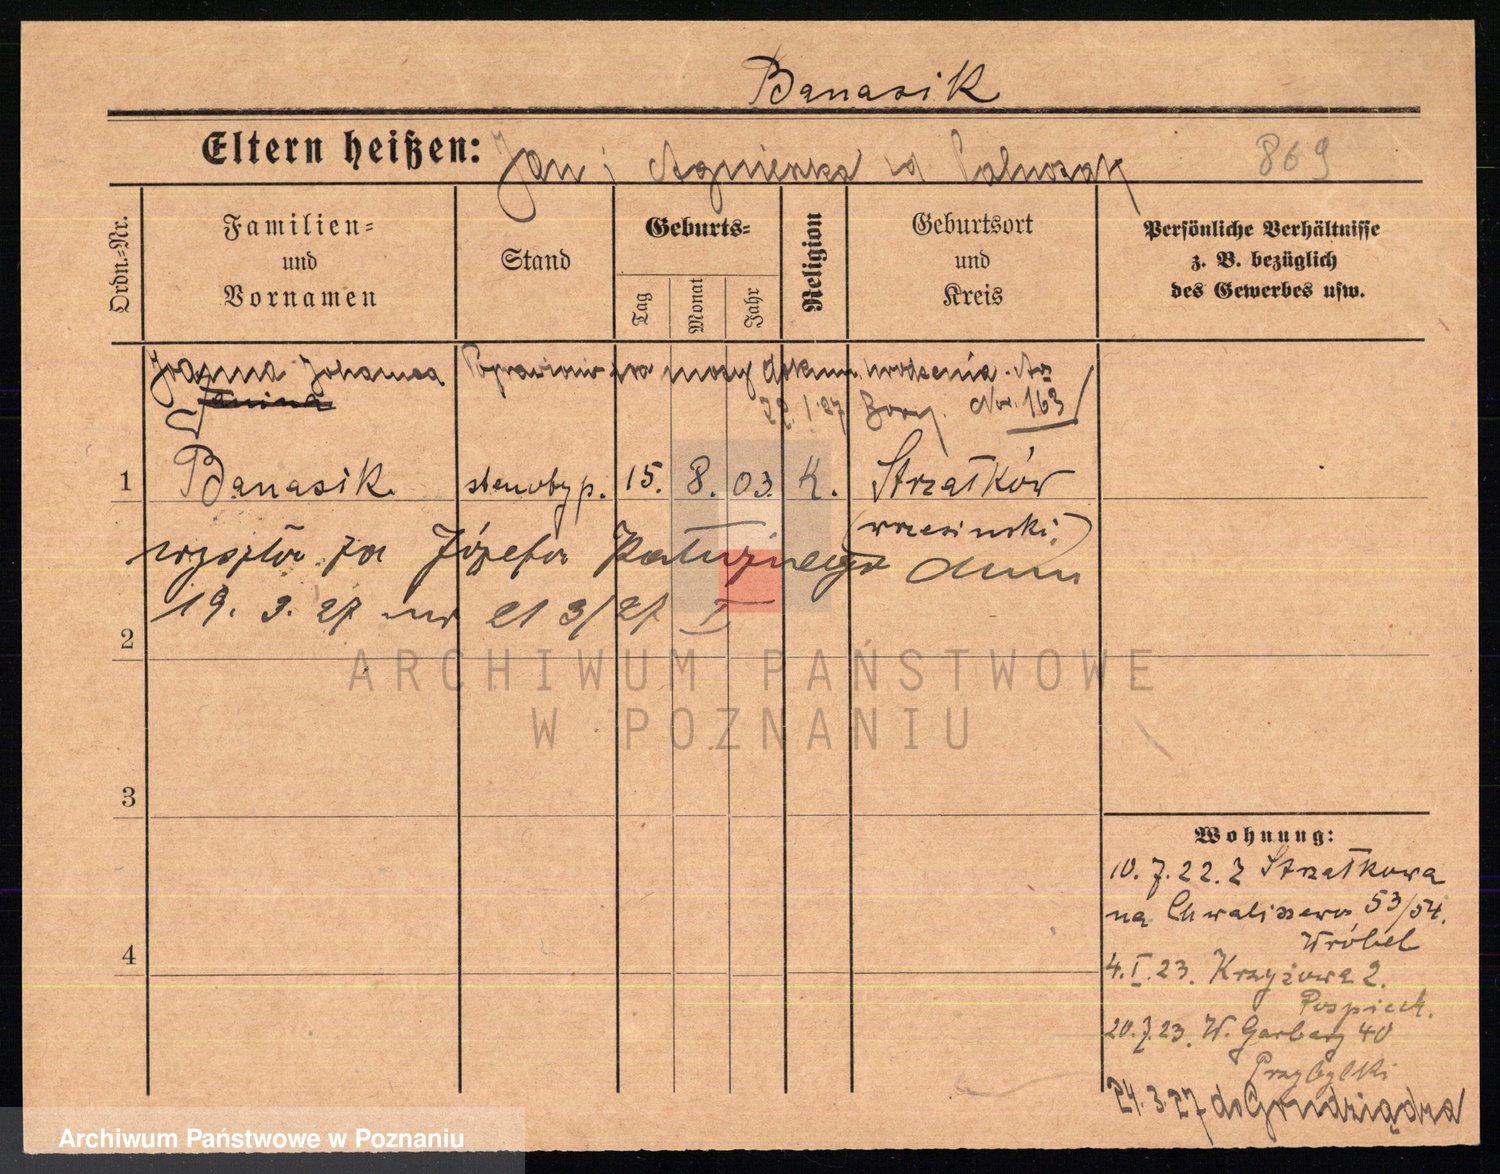 Banasik
Eltern heißen: Jan i Agnieszka 869
Ordn.-Nr.
Familien-
und
Vornamen
Stand
Geburts-
Tag
Monat
Jahr
Religion
Geburtsort
und
Kreis
Persönliche Verhältnisse
z. B. bezüglich
des Gewerbes usw.
Joanna Johanna Poprawiono na mocy dokum. urodzenia
Janina 22.1.27 Nr. 163
1 Banasik stenotyp. 15. 8. 03. K. Strzałków
(wrzesiński)
wyszła za Józefa dnia
19. 3. 27 nr 213/27 I
2
ARCHIWUM PAŃSTWOWE
W POZNANIU
3
4
Wohnung:
10. 7. 22. z Strzałkowa
na Chwaliszewo 53/54.
Wróbel
4. I. 23. Krzyżowa 2.
Pospiech.
20. 7. 23. W. Garbary 40
Przybylski
24. 3. 27 do Grudziądza
Archiwum Państwowe w Poznaniu